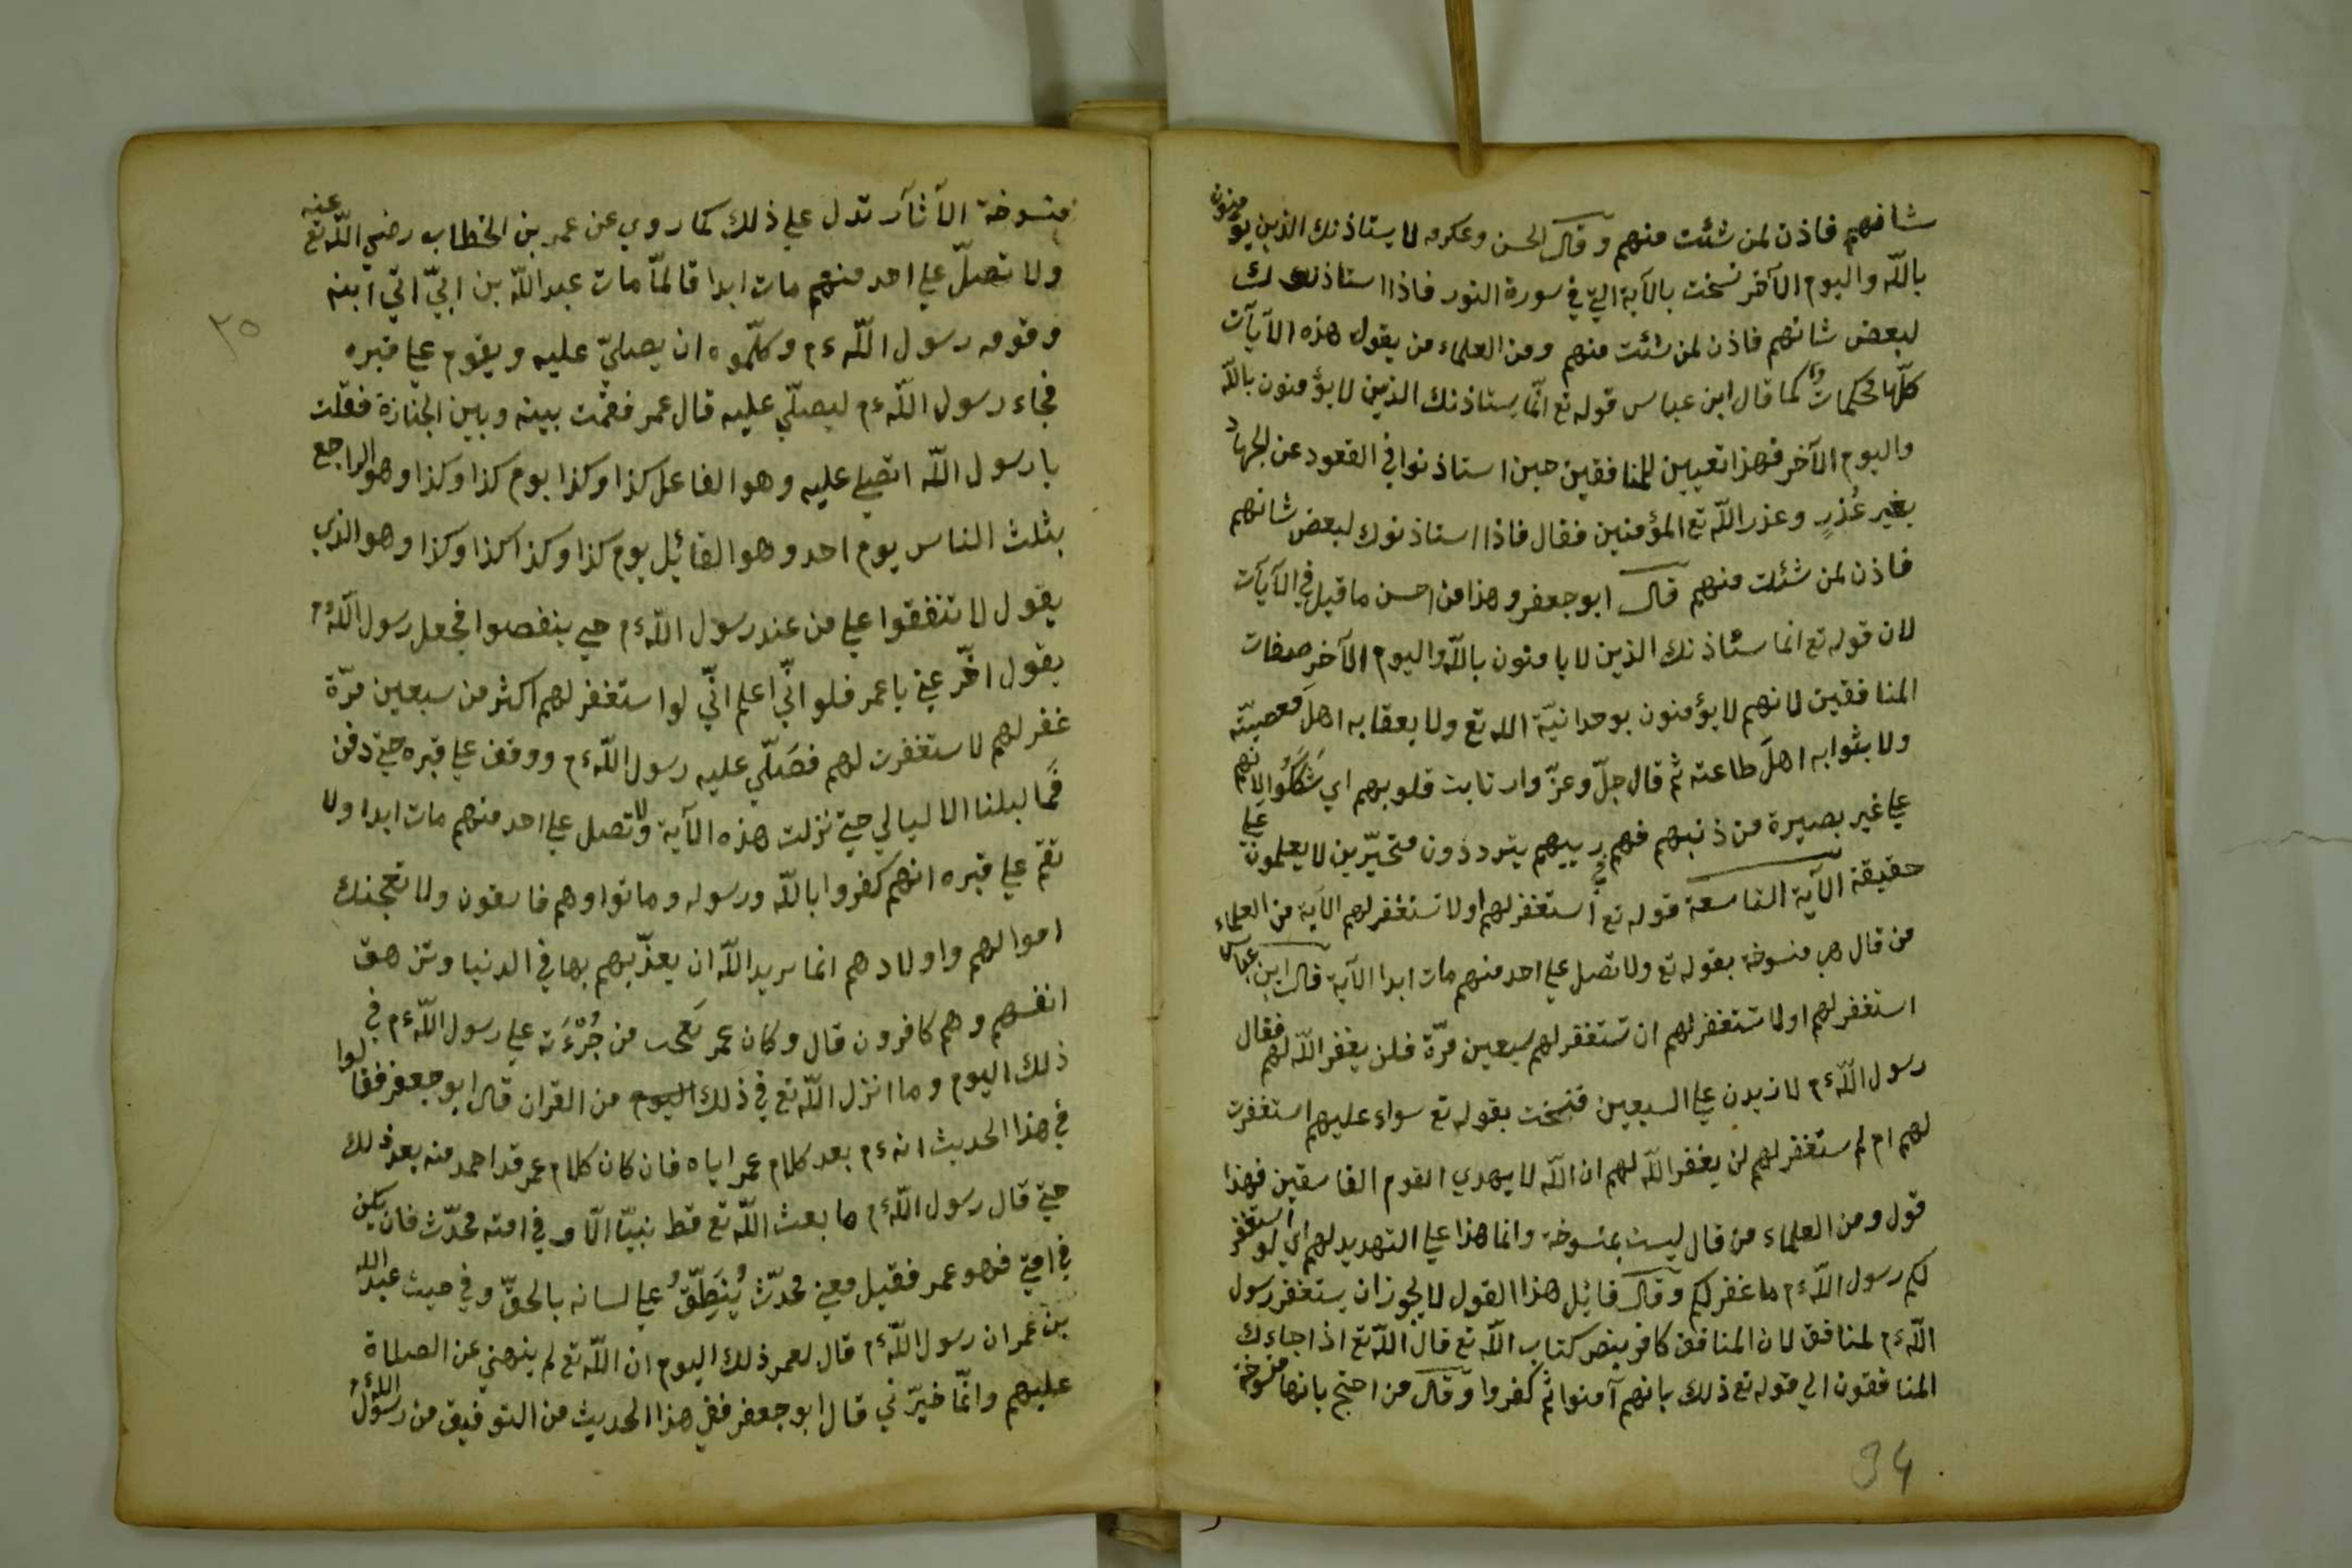 شانهم فاذن لمن شئت منهم وقال الحسن وعكرمه لا يستاذنك الذين يؤمنون
بالله واليوم الآخر نسخت بالآية التي في سورة النور فاذا استاذنوك
لبعض شانهم فاذن لمن شئت منهم ومن العلماء من يقول هذه الآيات
كلّها محكمات كما قال ابن عباس قوله تع انّما يستاذنك الذين لا يؤمنون بالله
واليوم الآخر فهذا تعيين للمنافقين حين استاذنوا في القعود عن الجهاد
بغير عُذرٍ وعذر الله تع المؤمنين فقال فاذا استاذنوك لبعض شانهم
فاذن لمن شئت منهم قال ابو جعفر وهذا من احسن ما قيل في الآيات
لان قوله تع انما ستاذنك الذين لا يامنون بالله واليوم الآخر صفات
المنافقين لانهم لا يؤمنون بوحدانيّة الله تع ولا بعقابه اهلَ معصيته
ولا بثوابه اهلَ طاعته ثم قال جلّ وعزّ وارتابت قلوبهم اي شَكَكُوا لانهم
علي غير بصيرة من ذنبهم فهم في ريبهم يترددون متحيّرين لا يعلمون علي
حقيقة الآية التاسعة قوله تع استغفر لهم او لا تستغفر لهم الآية من العلماء
من قال هي منسوخة بقوله تع ولا تصل علي احد منهم مات ابدا الآية قال ابن عباس
استغفر لهم او لا تستغفر لهم ان تستغفر لهم سبعين مرّة فلن يغفر الله لهم فقال
رسول الله ءم لازيدن علي السبعين فنسخت بقوله تع سواء عليهم استغفرت
لهم ام لم ستغفر لهم لن يغفر الله لهم ان الله لا يهدي القوم الفاسقين فهذا
قول ومن العلماء من قال ليست بمنسوخة وانما هذا علي التهديد لهم اي لو استغفر
لكم رسول الله ءم ما غفر لكم وقال قائيل هذا القول لا يجوز ان يستغفر رسول
الله ءم لمنافق لان المنافق كافر بنص كتاب الله تع قال الله تع اذا جاءك
المنافقون الي قوله تع ذلك بانهم آمنوا ثم كفروا وقال من احتج بانها منسوخة
34
منسوخة الآثآر تدل علي ذلك كما روي عن عمر بن الخطاب رضي الله تع عنه
ولا تصلّ علي احد منهم مات ابدا قا لمّا مات عبد الله بن ابيّ اتي ابنه
وقومه رسول الله ءم وكلّموه ان يصليّ عليه ويقوم علي قبره
فجاء رسول الله ءم ليصلّي عليه قال عمر فقمت بينه وبين الجنازة فقلت
يا رسول الله اتصلي عليه وهو الفاعل كذا وكذا يوم كذا وكذا وهو الراجع
بثلث الناس يوم احد وهو القائيل يوم كذا وكذا كذا وكذا وهو الذي
يقول لا تنفقوا علي من عند رسول الله ءم حتي ينفصوا فجعل رسول الله ءم
يقول اخّر عني يا عمر فلو انّي اعلم انّي لو استغفر لهم اكثر من سبعين مرّة
غفر لهم لاستغفرت لهم فصَلّي عليه رسول الله ءم ووقف علي قبره حتي دفن
فما لبلنا الا ليالي حتي نزلت هذه الآية ولا تصل علي احد منهم مات ابدا ولا
تقم علي قبره انهم كفروا بالله ورسوله وماتوا وهم فاسقون ولا تعجبك
اموالهم واولادهم انما يريد الله ان يعذّبهم بها في الدنيا وتزهق
انفسهم وهم كافرون قال وكان عمر يَعجب من جُرْءَته علي رسول الله ءم في
ذلك اليوم وما انزل الله تع في ذلك اليوم من القران قال ابو جعفر فقالوا
في هذا الحديث انه ءم بعد كلام عمر اياه فان كان كلام عمر قد احمد منه بعد ذلك
حتي قال رسول الله ءم ما بعث الله تع قط نبيّا الّا وفي امته محدّث فان يكن
في امتي فهو عمر فقيل معني محدّث يُنَطِقّ علي لسانه بالحقّ وفي حيث عبد الله
بن عمر ان رسول الله ءم قال لعمر ذلك اليوم ان الله تع لم ينهني عن الصلاة
عليهم وانّما خيّرني قال ابو جعفر ففي هذا الحديث من التوفيق من رسول الله ءم
٣٥